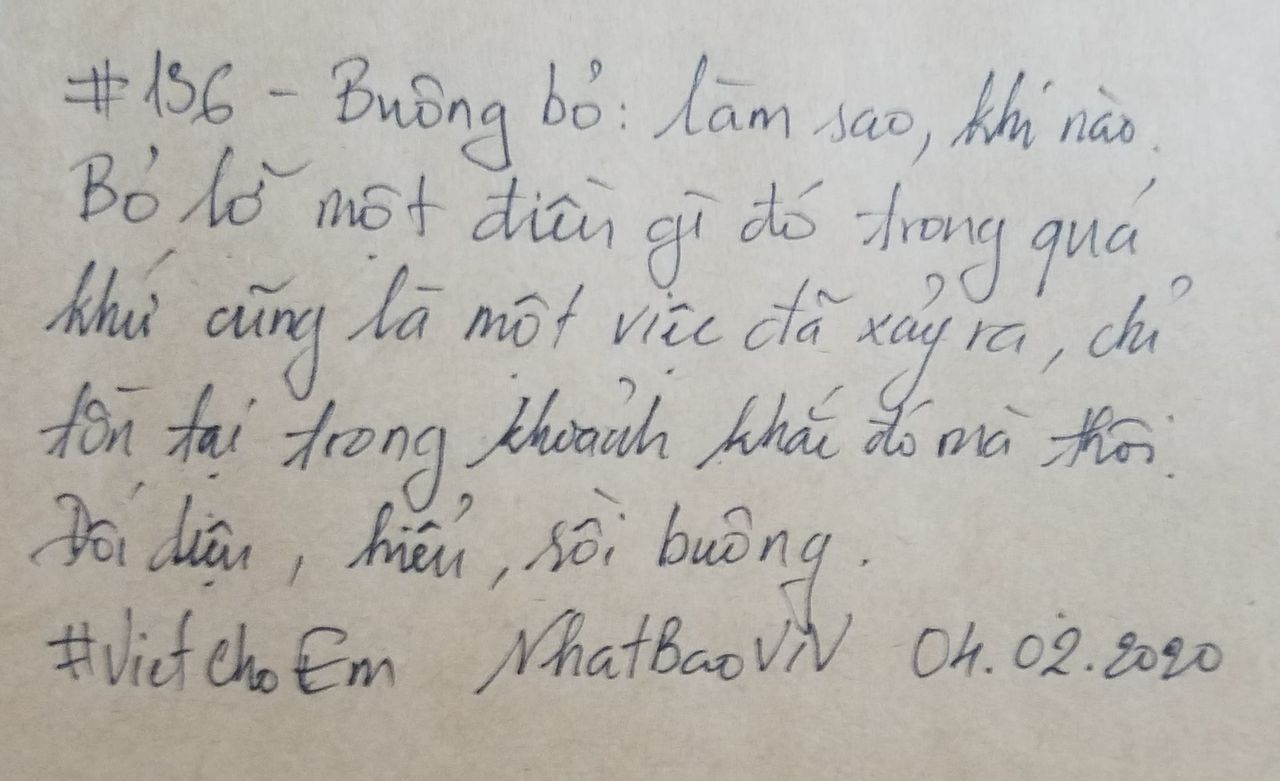 #136 - Buông bỏ: làm sao, khi nào.
Bỏ lỡ một điều gì đó trong quá
khứ cũng là một việc đã xảy ra, chỉ
tồn tại trong khoảnh khắc đó mà thôi.
Đối diện, hiểu, rồi buông.
#VietChoEm NhatBaoVN 04.02.2020